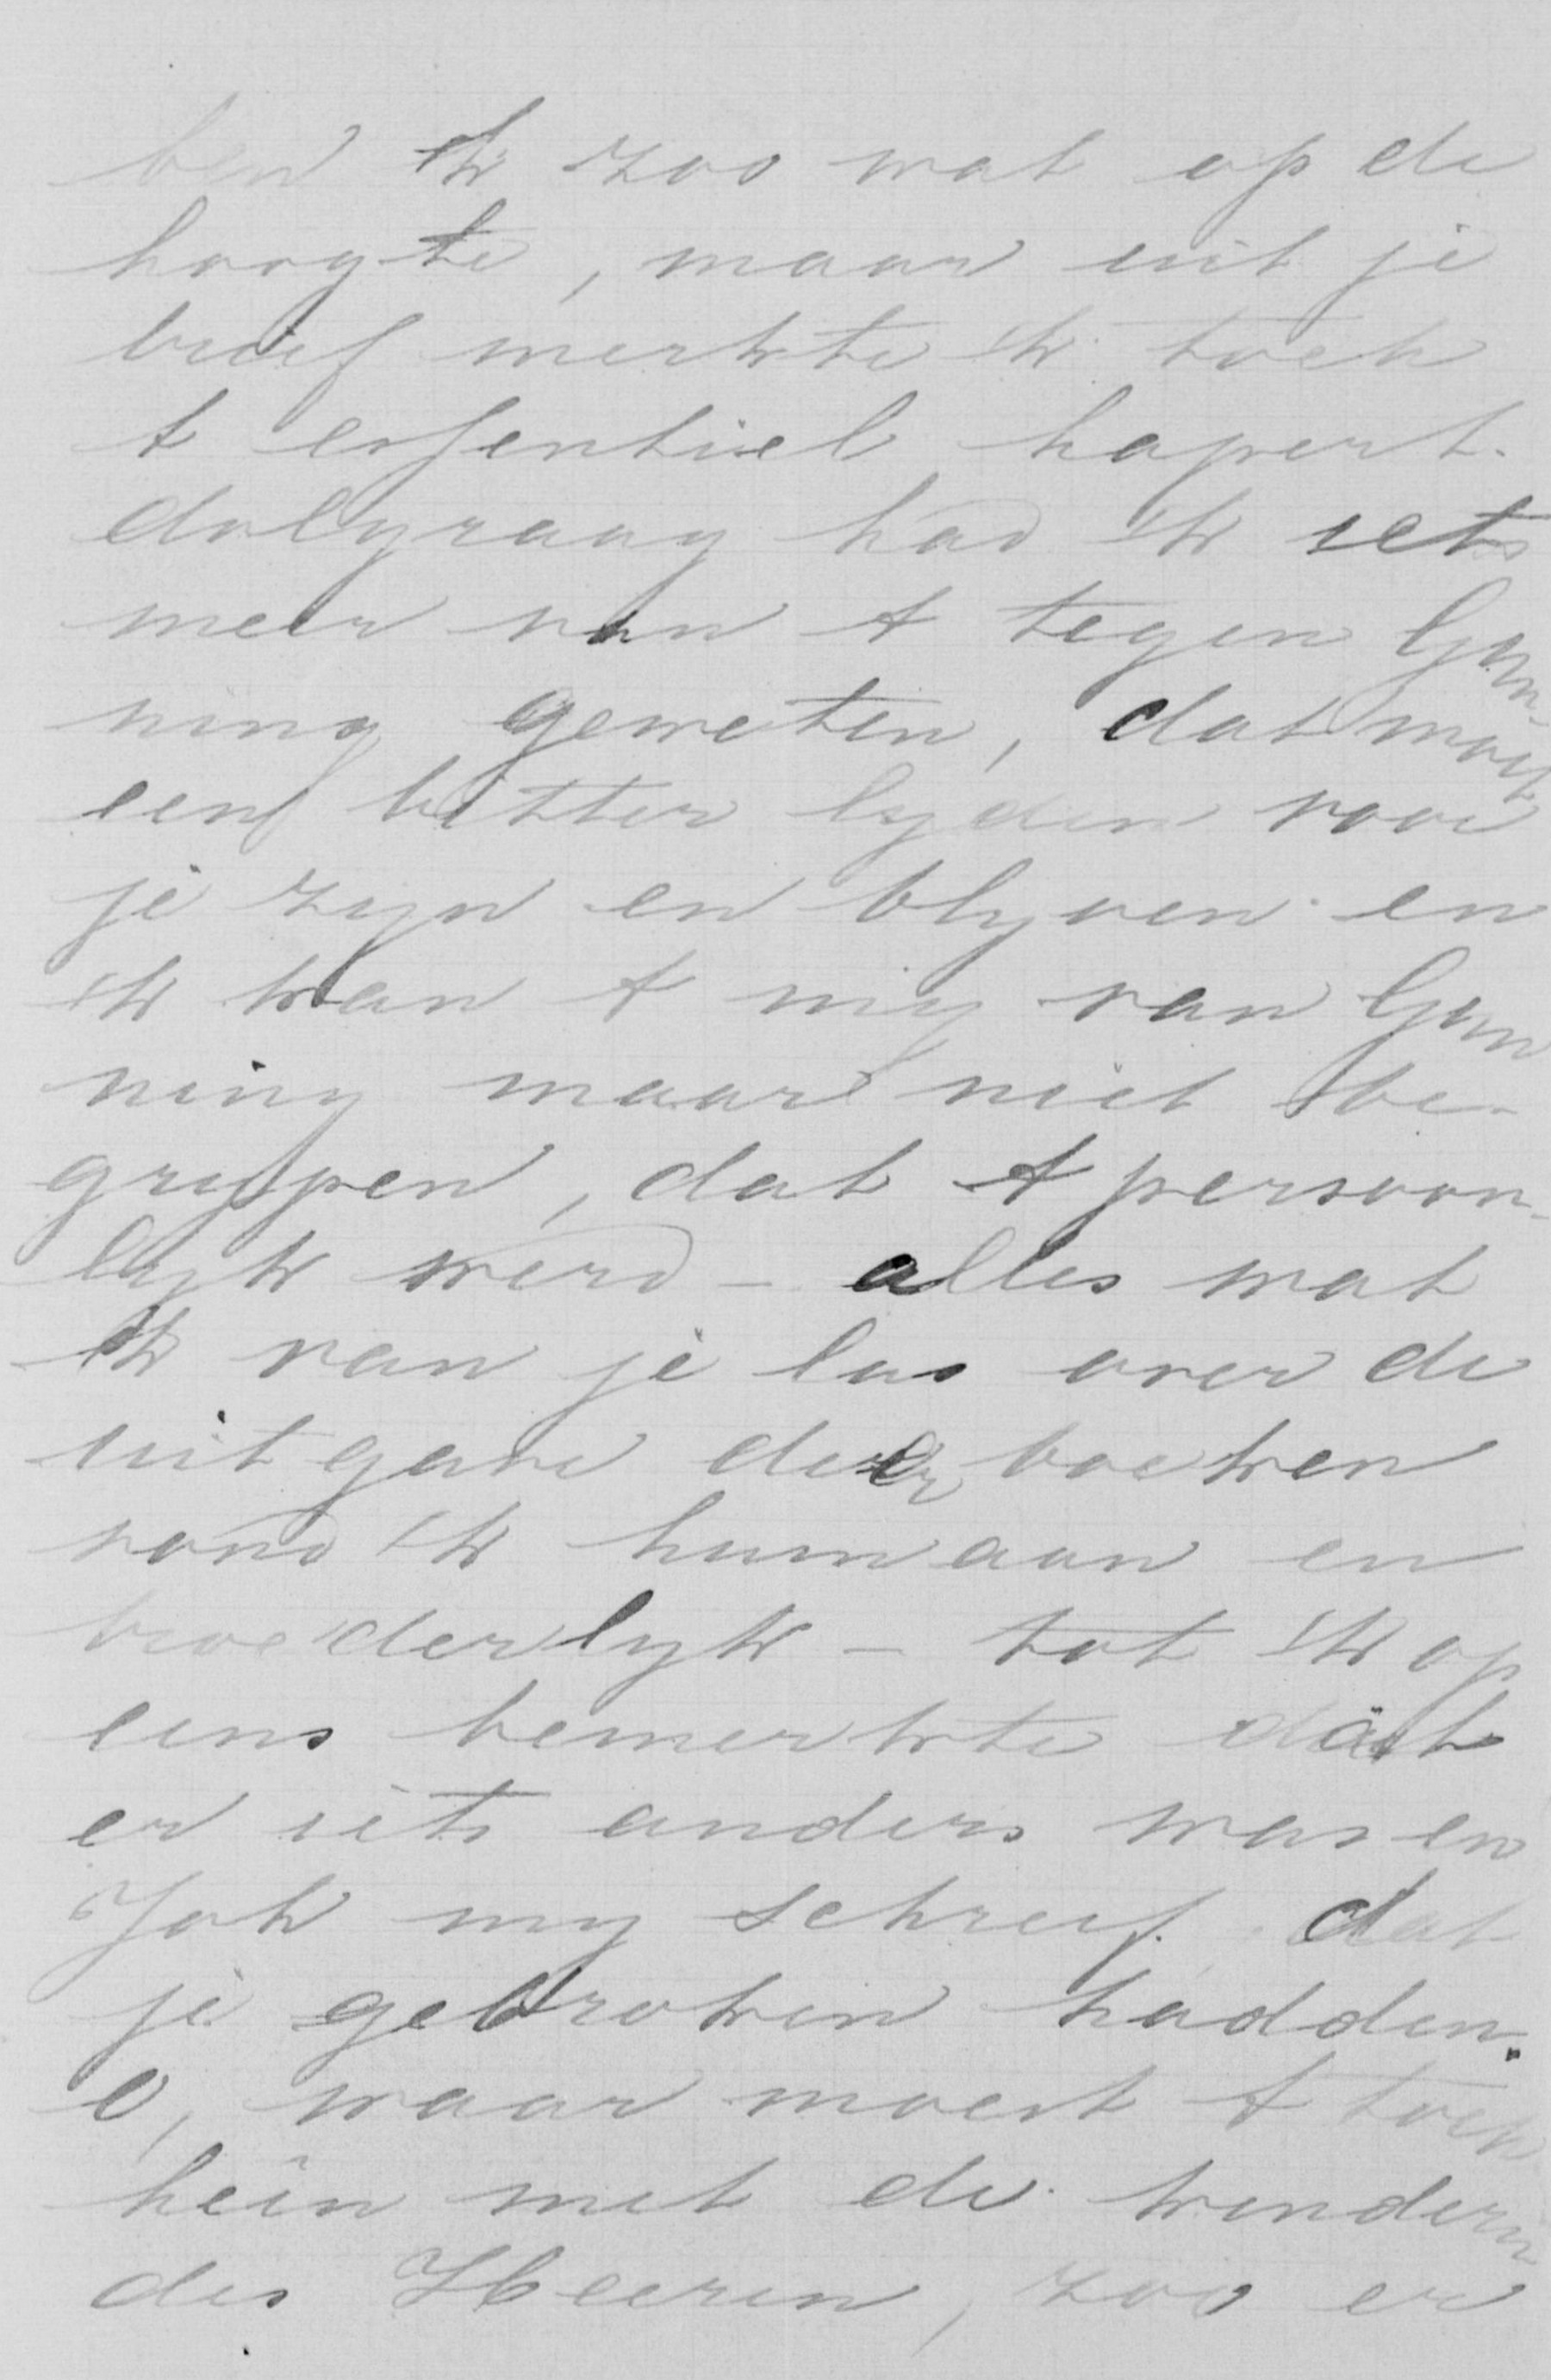 ben ik zoo wat op de
hoogte, maar uit je
brief merkte ik toch
t essentieel hapert.
dolgraag had ik iets
meer van t tegen Gun-
ning geweten, dat moet
een bitter lyden voor
je zyn en blyven en
ik kan t my van Gun
ning maar niet be-
grypen, dat t persoon-
lyk werd - alles wat
ik van je las over de
uitgave der boeken
vond ik humaan en
broederlyk - tot ik op
eens bemerkte dat
er iets anders was en
Joh my schreef dat
je gebroken hadden.
O, waar moest t toch
heen met de kinderen
des Heeren, zoo er